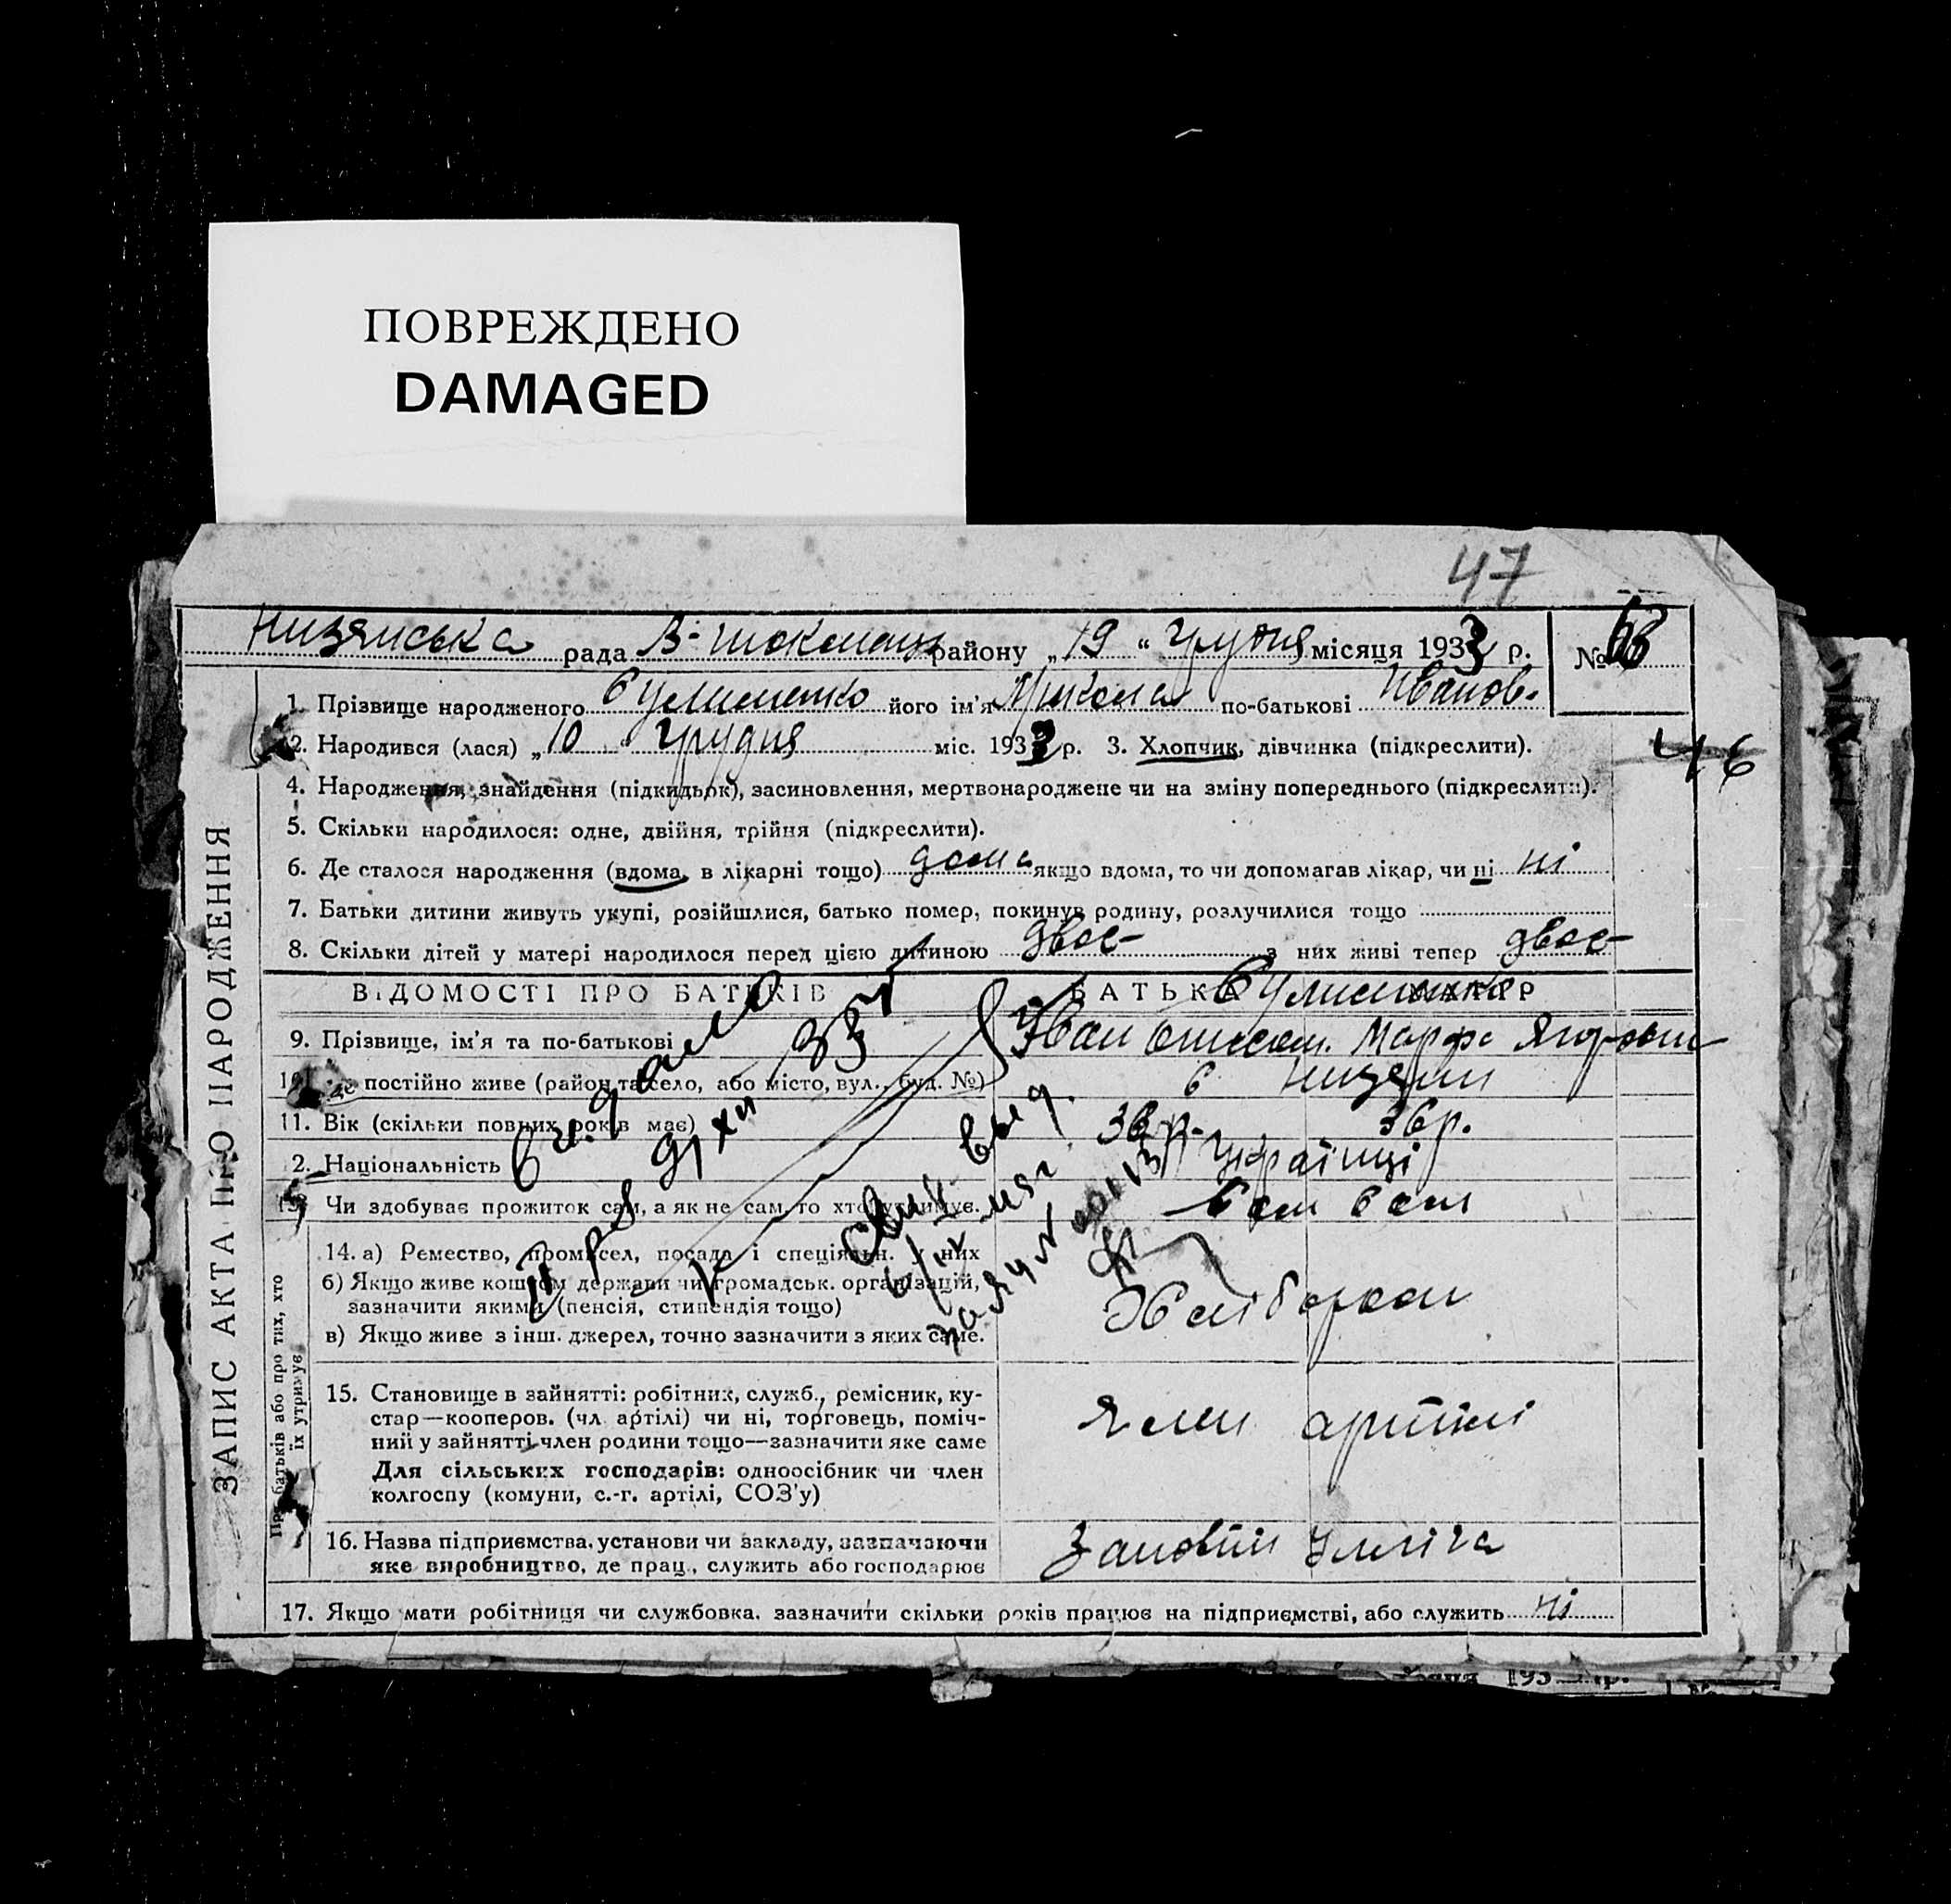 ПОВРЕЖДЕНО
DAMAGED
47
Низянська рада В-Токмац району „19“ Грудня місяця 1933 р. №
1. Прізвище народженого його ім'я Микола по-батькові Іванов.
2. Народився (лася) „10 Грудня міс. 1933 р. 3. Хлопчик, дівчинка (підкреслити).
46
4. Народження, знайдення (підкидьок), засиновлення, мертвонароджене чи на зміну попереднього (підкреслити).
5. Скільки народилося: одне, двійня, трійня (підкреслити).
6. Де сталося народження (вдома, в лікарні тощо) дома якщо вдома, то чи допомагав лікар, чи ні ні
7. Батьки дитини живуть укупі, розійшлися, батько помер, покинув родину, розлучилися тощо
8. Скільки дітей у матері народилося перед цією дитиною двоє з них живі тепер двоє
ЗАПИС АКТА ПРО НАРОДЖЕННЯ
ВІДОМОСТІ ПРО БАТЬКІВ БАТЬКА
9. Прізвище, ім'я та по-батькові Іван Марфа
10. Де постійно живе (район та село, або місто, вул., буд. №) с Низяни
11. Вік (скільки повних років має) 36 р. 36 р.
12. Національність Українці
13. Чи здобуває прожиток сам, а як не сам, то хто утримує. Сам сам
Про батьків або про тих, хто їх утримує
14. а) Ремество, промисел, посада і спеціяльн. у них
б) Якщо живе коштом держави чи громадськ. організацій,
зазначити якими (пенсія, стипендія тощо) Хлібороби
в) Якщо живе з інш. джерел, точно зазначити з яких саме.
15. Становище в зайнятті: робітник, служб., ремісник, ку-
стар—кооперов. (чл. артілі) чи ні, торговець, поміч- Член артілі
ний у зайнятті член родини тощо—зазначити яке саме
Для сільських господарів: одноосібник чи член
колгоспу (комуни, с.-г. артілі, СОЗ'у)
16. Назва підприємства, установи чи закладу, зазначаючи Заповіти Ілліча
яке виробництво, де прац., служить або господарює
17. Якщо мати робітниця чи службовка, зазначити скільки років працює на підприємстві, або служить ні